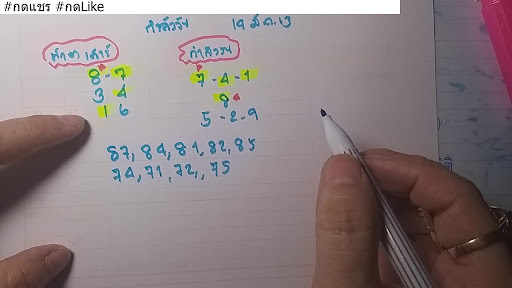 #กดแชร #กดLike
กำลังวัน 14 มี.ค. 63
กำลังวัน
8 - 7 7 - 4 - 1
3 4 8
1 6 5 - 2 - 9
87, 84, 81, 82, 85
74, 71, 72, 75